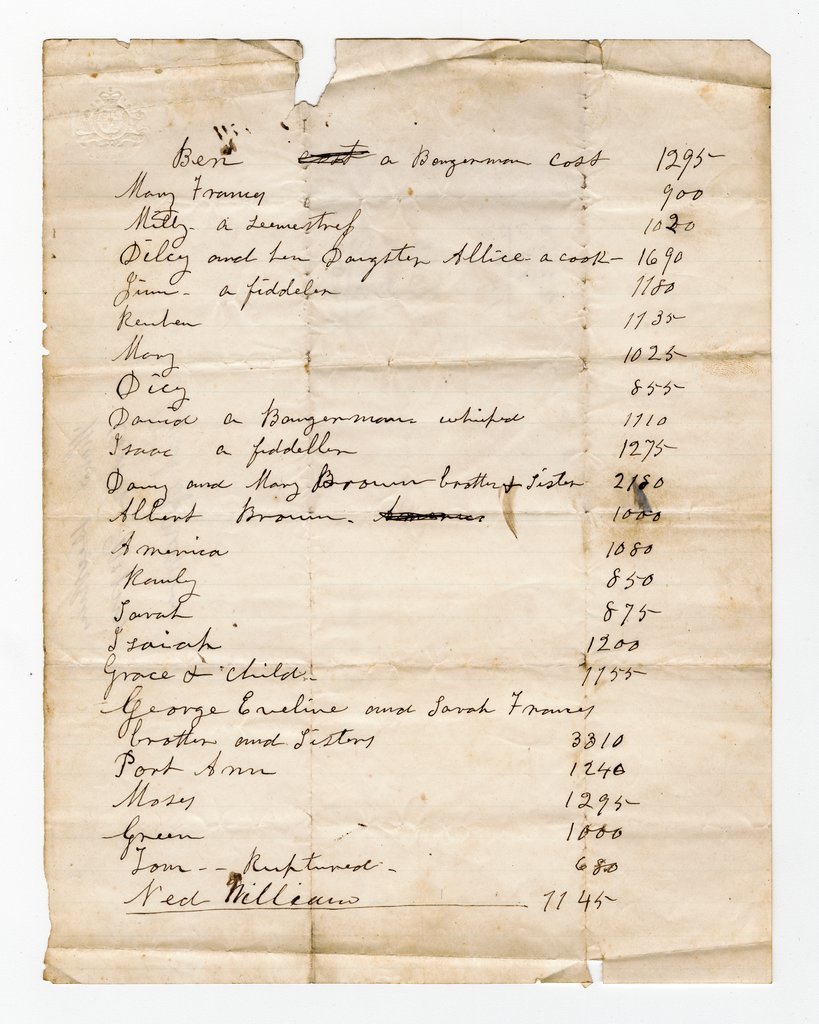 Ben cost a Bougerman cost 1295
Mary Frances 900
Milly - a seemestress 1020
Dilcy and her Daugster Allice - a cook - 1690
Jim - a fiddeler 1180
Reuben 1135
Mary 1025
Dicy 855
David a Bougerman whiped 1110
Isaac a fiddeller 1275
Davy and Mary Brown brother & Sister 2180
Albert Brown - America 1000
America 1080
850
Sarah 875
Isaiah 1200
Grace & child - 1155
George Eveline and Sarah Frances
brother and Sisters 3310
Port Ann 1240
Moses 1295
Green 1000
Tom - - Ruptured - 680
Ned William 1145